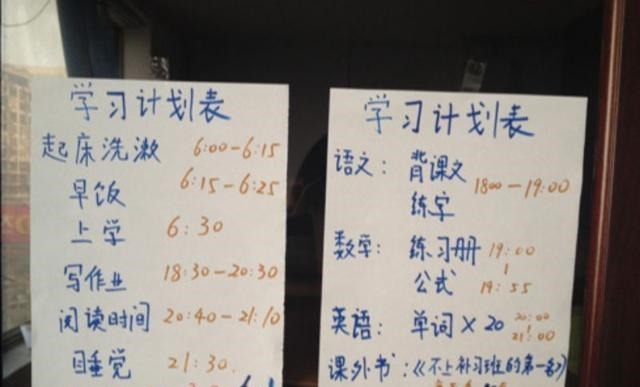 学习计划表
起床洗漱 6:00-6:15
早饭 6:15-6:25
上学 6:30
写作业 18:30-20:30
阅读时间 20:40-21:10
睡觉 21:30
学习计划表
语文: 背课文 1800-19:00
练字
数学: 练习册 19:00
公式 19:55
英语: 单词×20 20:00
21:00
课外书:《不上补习班的第一名》